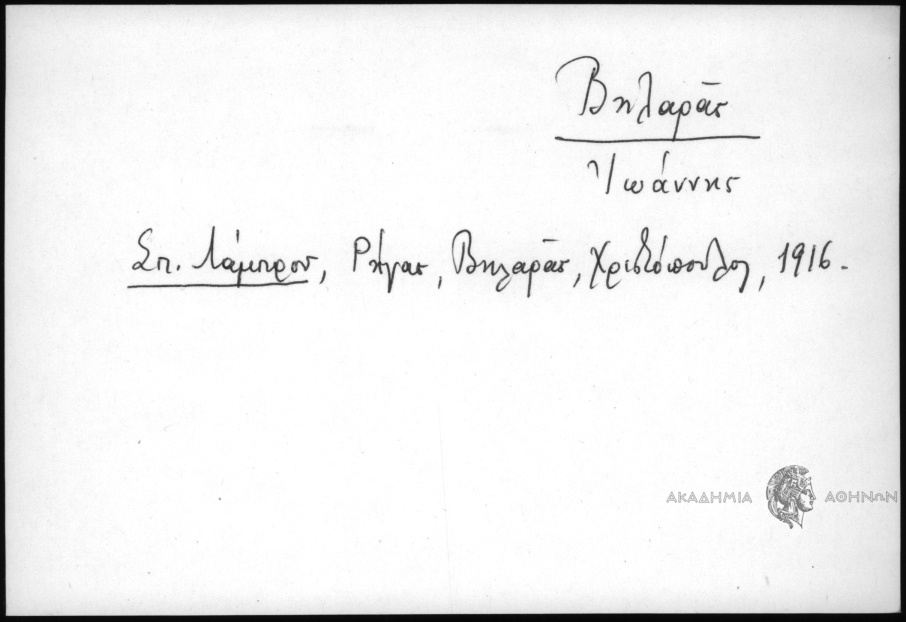 Βηλαρᾶς
Ἰωάννης
Σπ. Λάμπρου, Ρήγας, Βηλαρᾶς, Χριστόπουλος, 1916.
ΑΚΑΔΗΜΙΑ ΑΘΗΝΩΝ